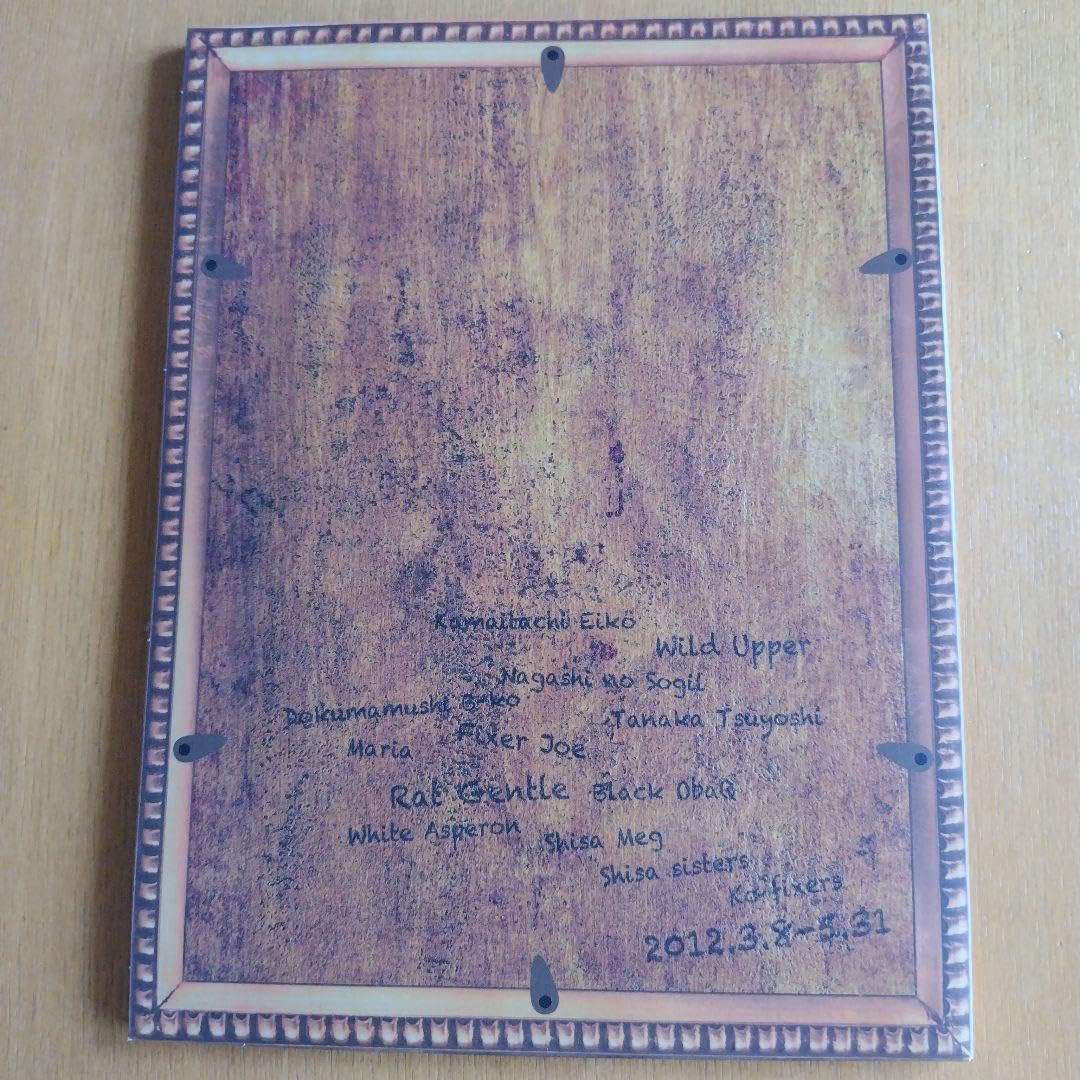 Kamaitachi Eiko
Wild Upper
Nagashi no Sogil
Dokumamushi O-ko
Tanaka Tsuyoshi
Fixer Joe
Maria
Rat Gentle
Black ObaQ
White Asperon
Shisa Meg
Shisa sisters
fixers
2012.3.8-5.31